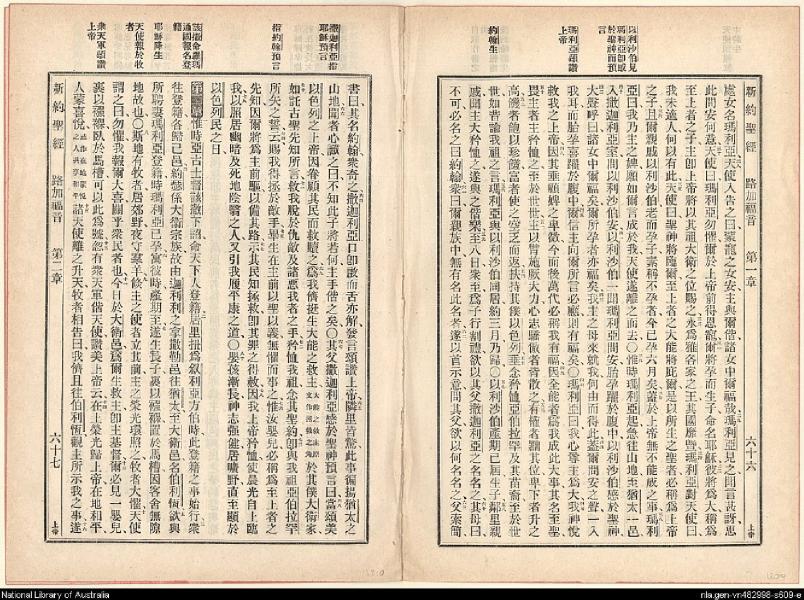 新約聖經 路加福音 第一章 六十六 上帝
以利沙伯見瑪利亞卽或於聖神而預言
瑪利亞頌讚上帝
約翰生
處女名瑪利亞天使入告之曰蒙寵之女安主與爾偕諸女中爾福哉瑪利亞見之聞言甚訝思
此問安何意天使曰瑪利亞勿懼爾於上帝前得恩寵爾將孕而生子命名耶穌彼將爲大稱爲
至上者之子主卽上帝將以其祖大衛之位賜之永爲雅各家之王其國靡暨瑪利亞對天使曰
我未適人何以有此天使曰聖神將臨爾至上者之大能將庇爾是以所生之聖者必稱爲上帝
之子且爾親戚以利沙伯老而孕子素稱不孕者今已孕六月矣蓋於上帝無不能成之事瑪利
亞曰我乃主之婢願如爾言成於我天使遂離之而去○惟時瑪利亞起急往山地至猶太一邑
入撒迦利亞室問以利沙伯安以利沙伯一聞瑪利亞問安胎孕躍於腹中以利沙伯感於聖神
大聲呼曰諸女中爾福矣爾所孕者亦福矣我主之母來就我何由而得此蓋爾問安之聲一入
我耳而胎孕喜躍於腹中爾信主向爾所言必應則有福矣○瑪利亞曰我心尊主爲大我神悅
救我之上帝因其垂顧婢之卑微今而後萬代必稱我有福因全能者爲我成此大事其名至聖
畏主者主矜恤之至於世世主以臂施厥大力心志驕傲者皆散之有權者黜其位卑下者升之
高饑者飽以珍饈富者使之空乏而返扶持其僕以色列垂念矜恤亞伯拉罕及其苗裔至於世
世如昔諭我祖之言瑪利亞與以利沙伯同居約三月乃歸○以利沙伯產期已屆生子鄰里親
戚聞主大矜恤之遂與之偕樂至八日眾至爲子行割禮欲以其父撒迦利亞之名名之其母曰
不可必名之曰約翰眾曰爾親族中無有名此名者遂以首示意問其父欲以何名名之父索簡
撒迦利亞指耶穌預言
指約翰預言
耶穌降生
天使報於牧者
眾天軍頌讚上帝
書曰其名約翰眾奇之撒迦利亞口卽啟而舌亦解發言頌讚上帝鄰里皆驚此事徧揚猶太之
山地聞者心識之曰不知此子將若何主手偕之矣○其父撒迦利亞感於聖神預言曰當頌美
以色列之上帝因眷顧其民而救贖之爲我儕挺生大能之救主於其僕大衛家
如託古聖先知所言救我脫於仇敵及諸惡我者之手矜恤我祖念其聖約卽與我祖亞伯拉罕
所矢之誓云賜我得拯於敵手畢生在主前以聖以義無懼而事之惟汝嬰兒必稱爲至上者之
先知因爾將爲主前驅以備其路示其民知拯救卽其罪之得赦因我上帝矜恤使晨光自上臨
我以照居幽暗及死地陰翳之人又引我履平康之道○嬰孩漸長神志強健居曠野直至顯於
以色列民之日
第二章惟時亞古士督該撒下詔命天下人登籍居里扭爲叙利亞方伯時此登籍之事始行眾
往登籍各歸己邑約瑟係大衛宗族故由迦利利之拿撒勒邑往猶太至大衛邑名伯利恆欲與
所聘妻瑪利亞登籍時瑪利亞已孕寓彼時產期至遂生長子裹以襁褓置於馬槽因客舍無隙
地故也○斯地有牧者居郊野夜守羣羊倏主之使者立其前主之榮光環照之牧者大懼天使
謂之曰勿懼我報爾大喜關乎眾民者也今日於大衛邑爲爾生救主卽主基督爾必見一嬰兒
裹以襁褓臥於馬槽可以此爲號忽有眾天軍偕天使讚美上帝云在上榮光歸上帝在地和平
人蒙喜悅諸天使離之升天牧者相告曰我儕且往伯利恆觀主所示我之事遂
新約聖經 路加福音 第二章 六十七 上帝
National Library of Australia
nla.gen-vn482998-s609-e